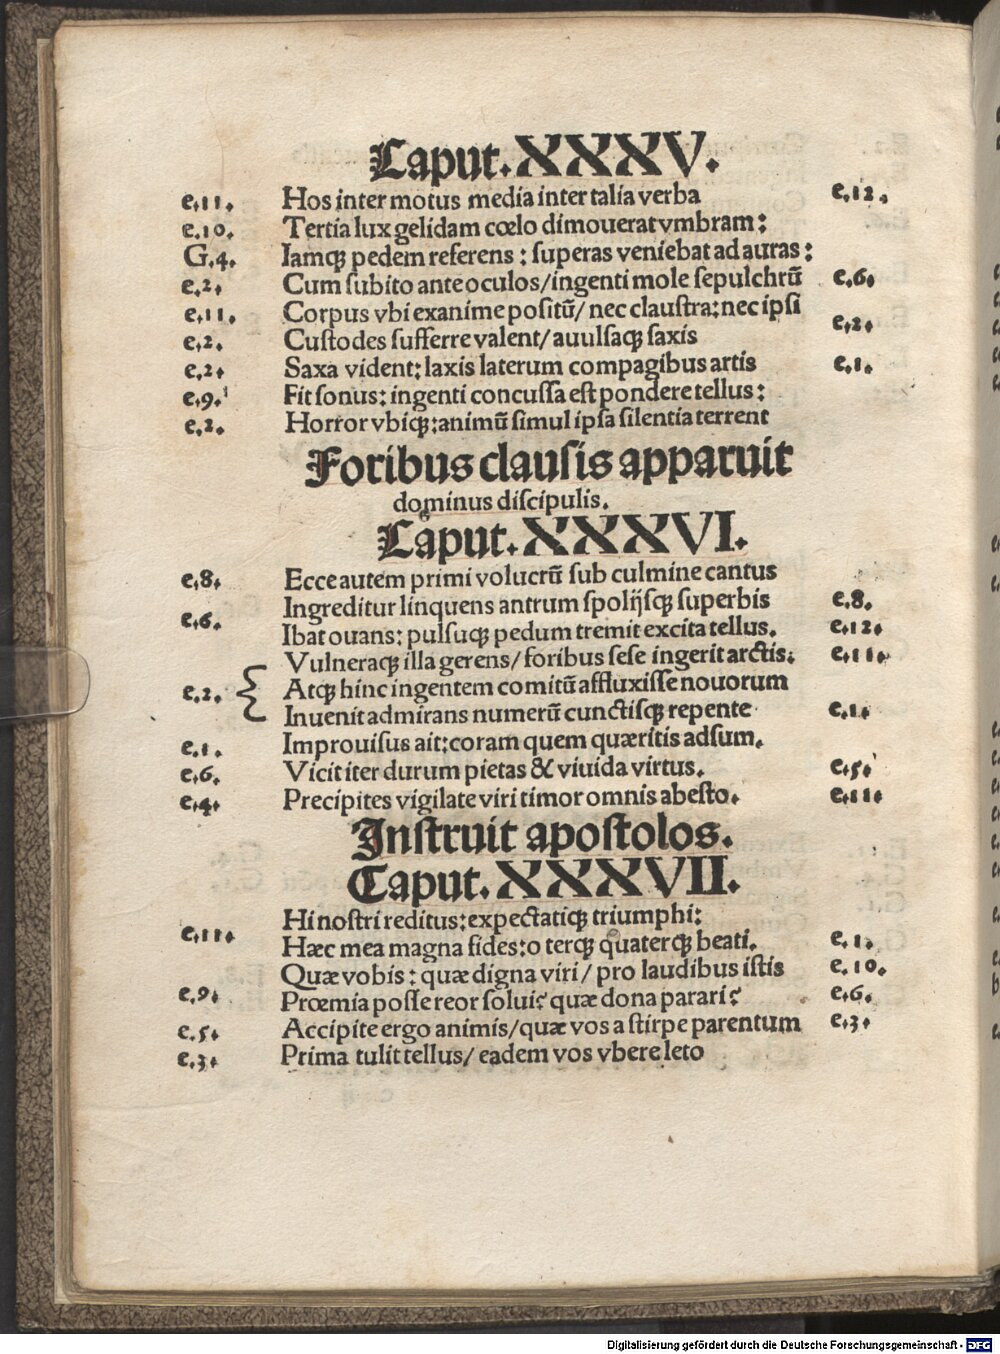 Caput.XXXV.
e.11. Hos inter motus media inter talia verba e.12.
e.10. Tertia lux gelidam cœlo dimouerat vmbram:
G.4. Iamqꝫ pedem referens: superas veniebat ad auras:
e.2. Cum subito ante oculos/ingenti mole sepulchrū e.6.
e.11. Corpus vbi exanime positū/ nec claustra: nec ipsi
e.2. Custodes sufferre valent/auulsaqꝫ saxis e.2.
e.2. Saxa vident: laxis laterum compagibus artis e.1.
e.9. Fit sonus: ingenti concussa est pondere tellus:
e.2. Horror vbiqꝫ: animū simul ipsa silentia terrent
Foribus clausis apparuit
dominus discipulis.
Caput.XXXVI.
e.8. Ecce autem primi volucrū sub culmine cantus
Ingreditur linquens antrum spolijsqꝫ superbis e.8.
e.6. Ibat ouans: pulsuqꝫ pedum tremit excita tellus. e.12.
Vulneraqꝫ illa gerens/foribus sese ingerit arctis: e.11.
e.2. Atqꝫ hinc ingentem comitū affluxisse nouorum
Inuenit admirans numerū cunctisqꝫ repente e.1.
e.1. Improuisus ait: coram quem quæritis adsum.
e.6. Vicit iter durum pietas & viuida virtus. e.5.
e.4. Precipites vigilate viri timor omnis abesto. e.11.
Instruit apostolos.
Caput.XXXVII.
Hi nostri reditus: expectatiqꝫ triumphi:
e.11. Hæc mea magna fides: o terqꝫ quaterqꝫ beati. e.1.
Quæ vobis: quæ digna viri/ pro laudibus istis e.10.
e.9. Prœmia posse reor solui? quæ dona parari? e.6.
e.5. Accipite ergo animis/quæ vos a stirpe parentum e.3.
e.3. Prima tulit tellus/ eadem vos vbere leto
Digitalisierung gefördert durch die Deutsche Forschungsgemeinschaft - DFG